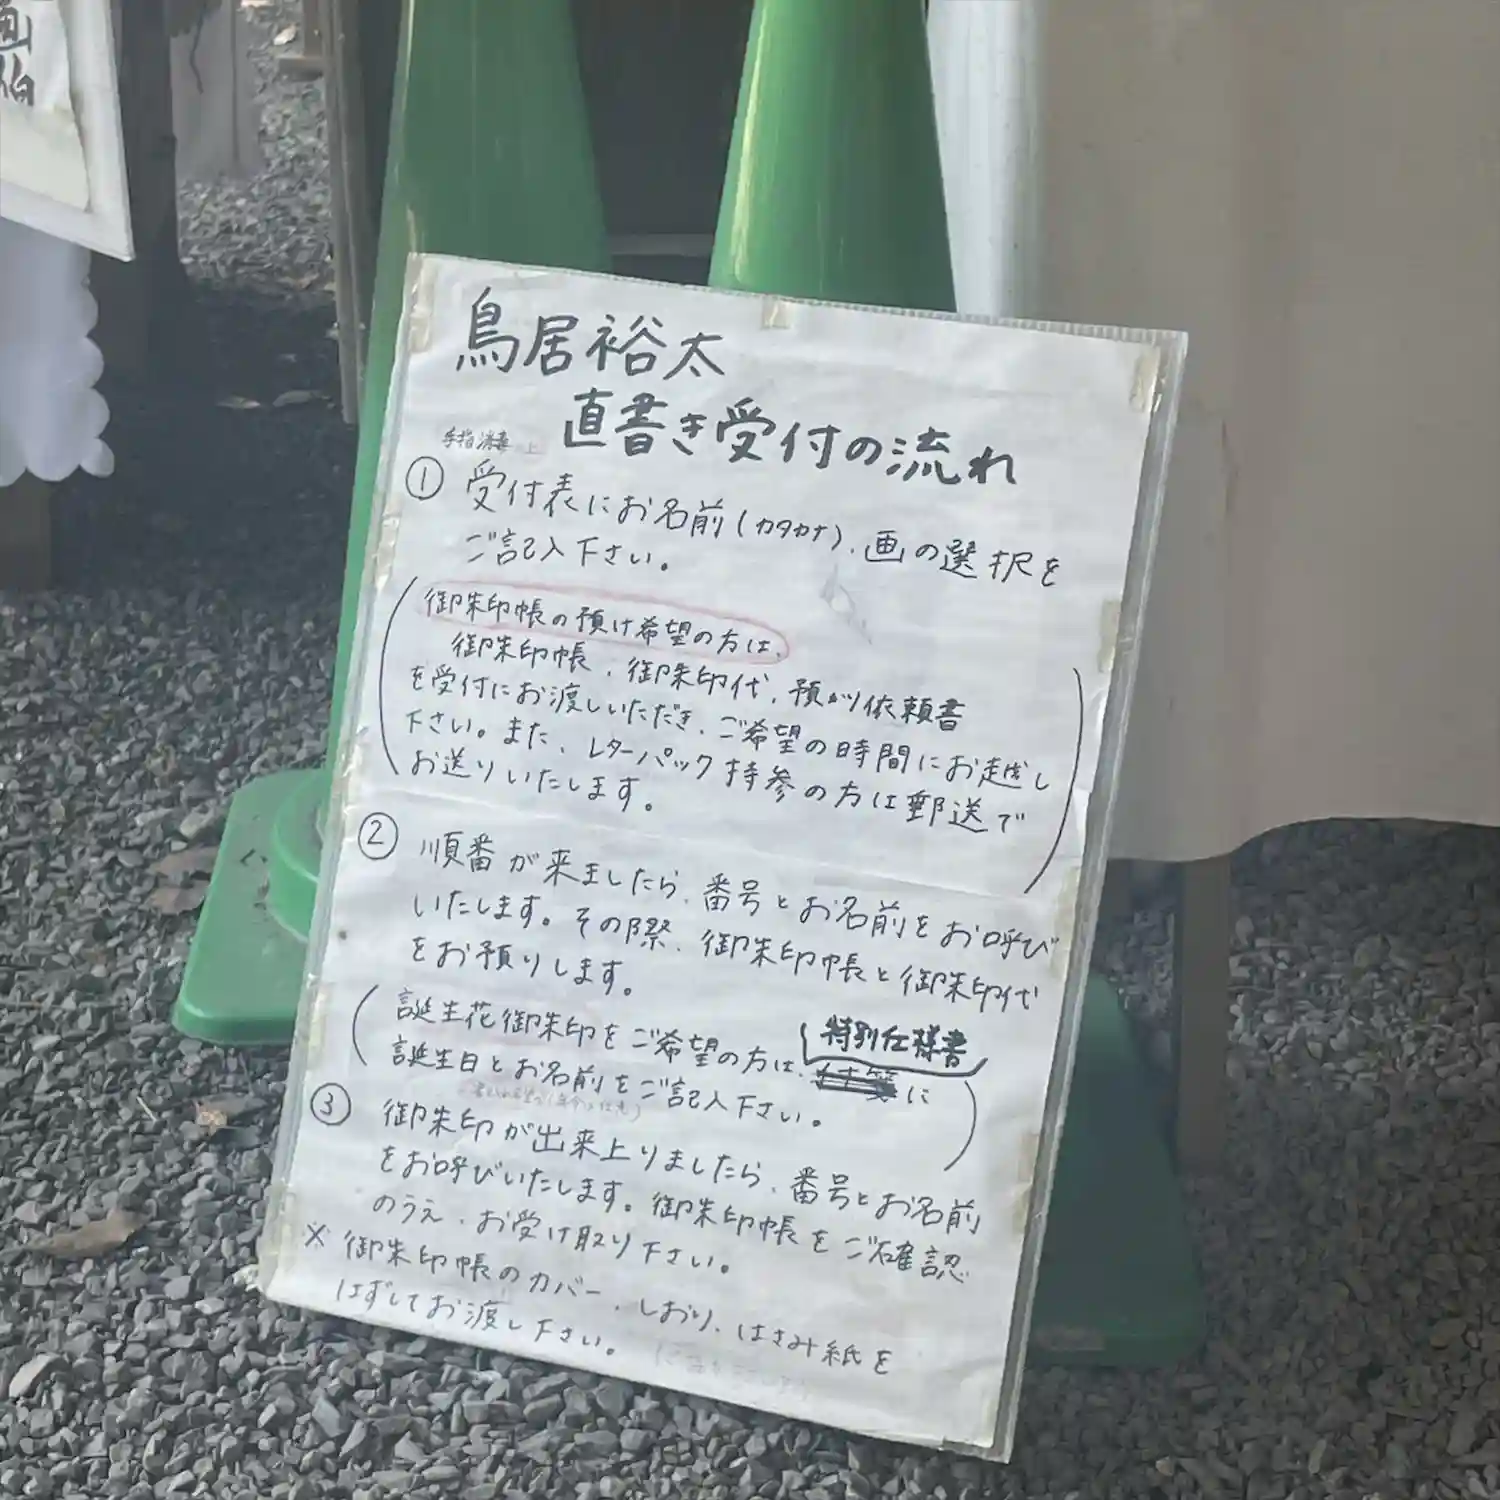 鳥居裕太
直書き受付の流れ
手指消毒
① 受付表にお名前(カタカナ)、画の選択を
ご記入下さい。
(御朱印帳の預け希望の方は、
御朱印帳、御朱印代、預かり依頼書
を受付にお渡しいただき、ご希望の時間にお越し
下さい。また、レターパック持参の方は郵送で
お送りいたします。)
② 順番が来ましたら、番号とお名前をお呼び
いたします。その際、御朱印帳と御朱印代
をお預りします。
特別仕様書
(誕生花御朱印をご希望の方は、に
誕生日とお名前をご記入下さい。)
③ 御朱印が出来上りましたら、番号とお名前
をお呼びいたします。御朱印帳をご確認
のうえ、お受け取り下さい。
※ 御朱印帳のカバー、しおり、はさみ紙を
はずしてお渡し下さい。